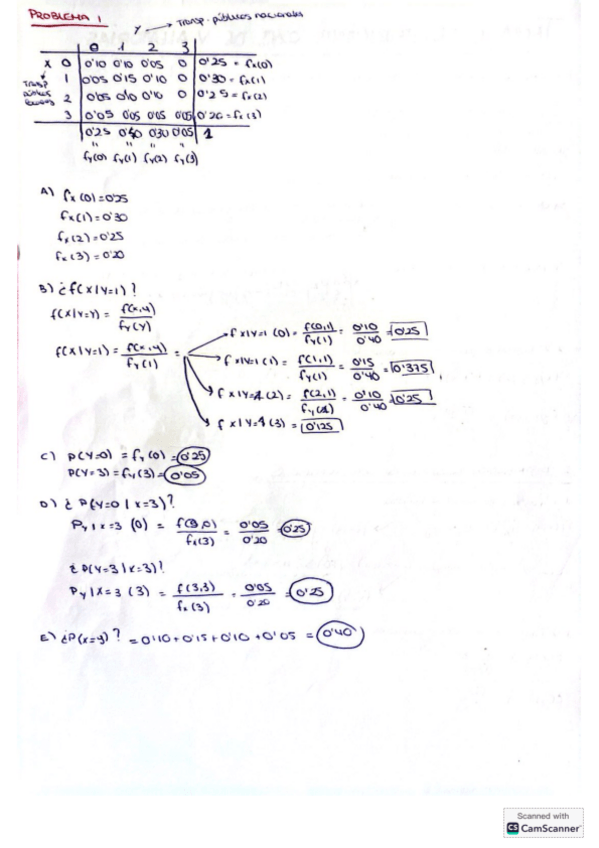 PROBLEMA 1
Y → Transp. públicos nacionales
0 1 2 3
X 0 0'10 0'10 0'05 0 0'25 = fx(0)
1 0'05 0'15 0'10 0 0'30 = fx(1)
2 0'05 0'10 0'10 0 0'25 = fx(2)
3 0'05 0'05 0'05 0'05 0'20 = fx(3)
Transp públicos
0'25 0'40 0'30 0'05 1
" " " "
fy(0) fy(1) fy(2) fy(3)
A) fx(0)=0'25
fx(1)=0'30
fx(2)=0'25
fx(3)=0'20
B) ¿f(X|Y=1)?
f(X|Y=Y) = f(x,y) / fy(Y)
f(X|Y=1) = f(x,y) / fy(1) =
f X|Y=1 (0) = f(0,1) / fy(1) = 0'10 / 0'40 = 0'25
f X|Y=1 (1) = f(1,1) / fy(1) = 0'15 / 0'40 = 0'375
f X|Y=1 (2) = f(2,1) / fy(1) = 0'10 / 0'40 = 0'25
f X|Y=1 (3) = 0'125
C) P(Y=0) = fy(0) = 0'25
P(Y=3) = fy(3) = 0'05
D) ¿ P(Y=0 | X=3)?
Py|x=3 (0) = f(3,0) / fx(3) = 0'05 / 0'20 = 0'25
¿ P(Y=3 | X=3)?
Py|X=3 (3) = f(3,3) / fx(3) = 0'05 / 0'20 = 0'25
E) ¿P(x=y)? = 0'10+0'15+0'10+0'05 = 0'40
Scanned with
CS CamScanner